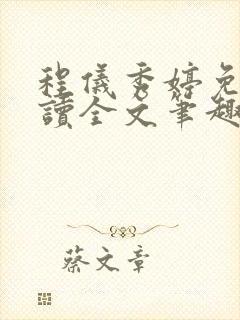 程儀秀婷免
讀全文筆趣
蔡文章